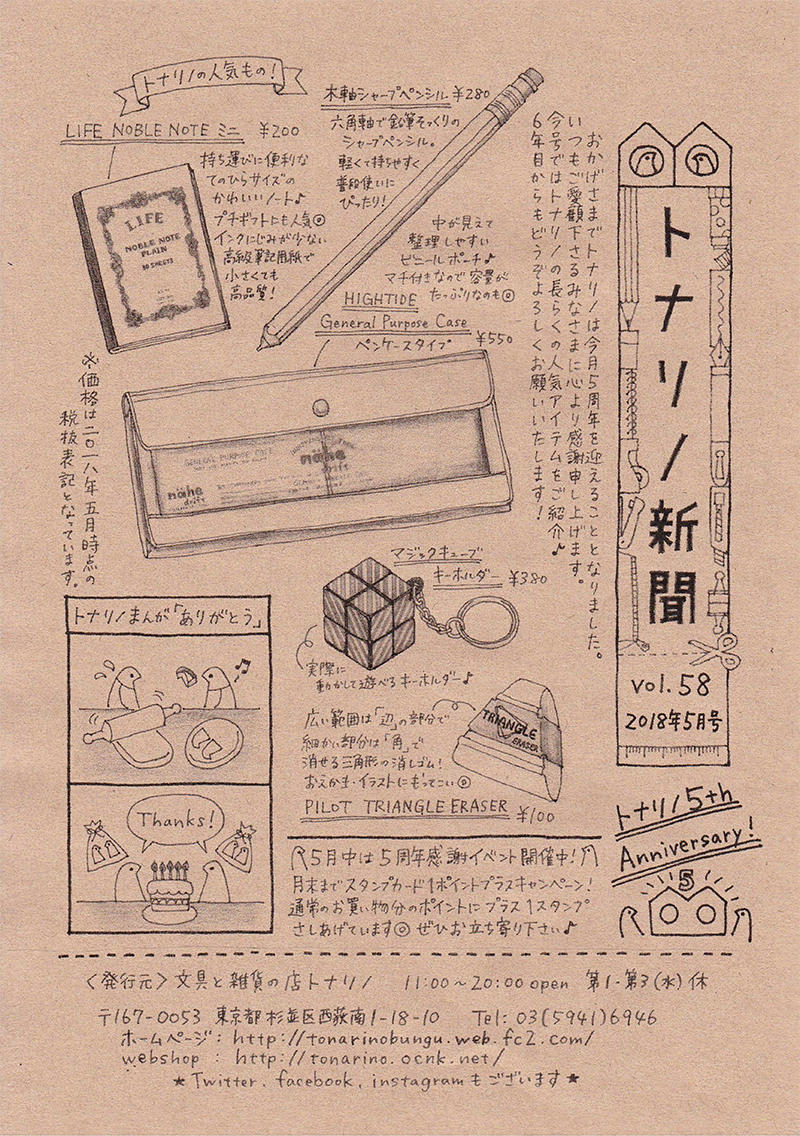 トナリノ新聞
vol.58
2018年5月号
おかげさまでトナリノは今月5周年を迎えることとなりました。
いつもご愛顧下さるみなさまに心より感謝申し上げます。
今号ではトナリノの長らくの人気アイテムをご紹介♪
6年目からもどうぞよろしくお願いいたします!
トナリノの人気もの!
木軸シャープペンシル ¥280
六角軸で鉛筆そっくりの
シャープペンシル。
軽くて持ちやすく
普段使いに
ぴったり!
LIFE NOBLE NOTE ミニ ¥200
持ち運びに便利な
てのひらサイズの
かわいいノート♪
プチギフトにも人気◎
インクにじみが少ない
高級筆記用紙で
小さくても
高品質!
LIFE
NOBLE NOTE
PLAIN
中が見えて
整理しやすい
ビニールポーチ♪
マチ付きなので容量が
たっぷりなのも◎
HIGHTIDE
General Purpose Case
ペンケースタイプ ¥550
GENERAL PURPOSE CASE
nähe
drift
nähe
drift
※価格は二〇一八年五月時点の
税抜表記となっています。
マジックキューブ
キーホルダー ¥380
実際に
動かして遊べるキーホルダー♪
TRIANGLE
ERASER
広い範囲は「辺」の部分で
細かい部分は「角」で
消せる三角形の消しゴム!
おえかき・イラストにもってこい◎
PILOT TRIANGLE ERASER ¥100
トナリノまんが「ありがとう」
Thanks!
5月中は5周年感謝イベント開催中!
月末までスタンプカード1ポイントプラスキャンペーン!
通常のお買い物分のポイントにプラス1スタンプ
さしあげています◎ ぜひお立ち寄り下さい♪
トナリノ5th
Anniversary!
5
〈発行元〉文具と雑貨の店トナリノ 11:00~20:00 open 第1・第3(水)休
〒167-0053 東京都杉並区西荻南1-18-10 Tel: 03(5941)6946
ホームページ: http://tonarinobungu.web.fc2.com/
webshop : http://tonarino.ocnk.net/
★Twitter、facebook、instagramもございます★